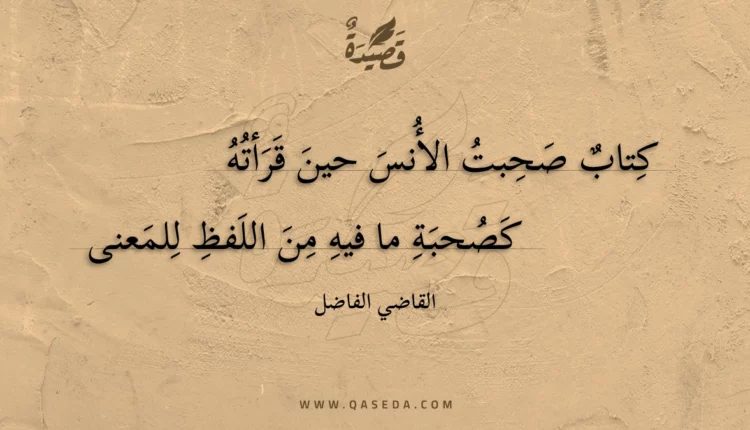 قَصِيدَةٌ
كِتابٌ صَحِبتُ الأُنسَ حينَ قَرَأتُهُ
كَصُحبَةِ ما فيهِ مِنَ اللَفظِ لِلمَعنى
القاضي الفاضل
WWW.QASEDA.COM